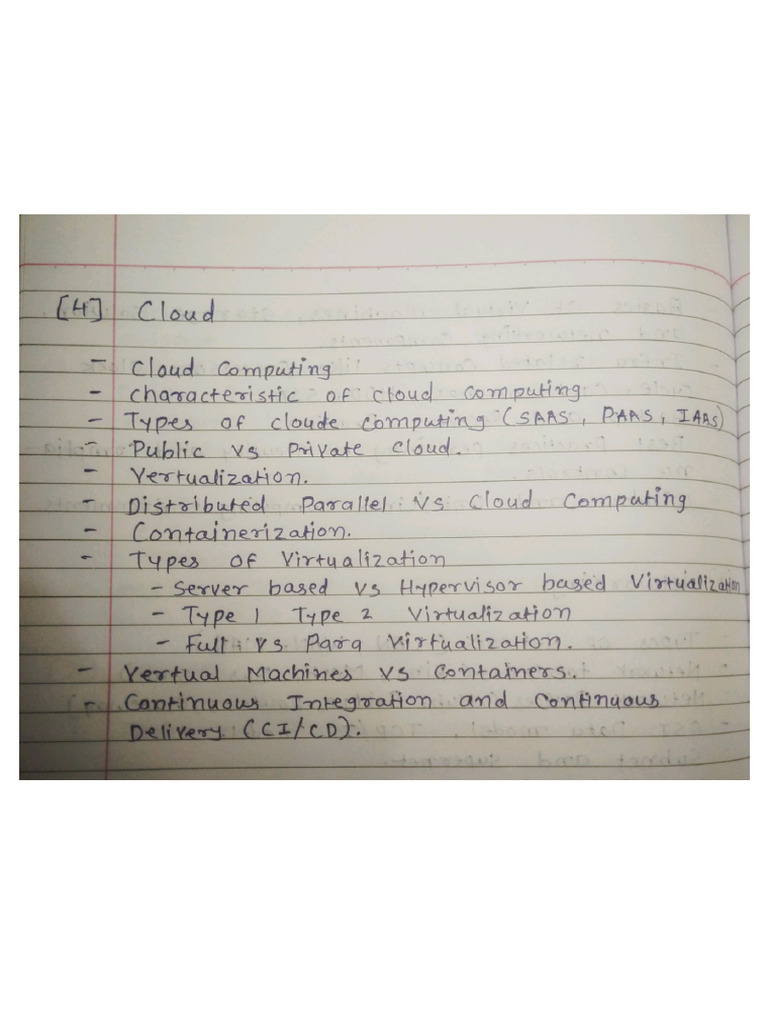 [4] Cloud
- Cloud Computing
- Characteristic of cloud computing
- Types of cloude computing (SAAS, PAAS, IAAS)
- Public vs Private Cloud.
- Vertualization.
- Distributed Parallel vs Cloud Computing
- Containerization.
- Types of Virtualization
- Server based vs Hypervisor based Virtualization
- Type 1 Type 2 Virtualization
- Full vs Para Virtualization.
- Vertual Machines vs Containers.
- Continuous Integration and Continuous
Delivery (CI/CD).